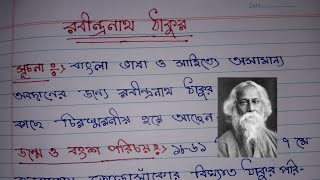 রবীন্দ্রনাথ ঠাকুর
সূচনা ঃ> বাংলা ভাষা ও সাহিত্যে অসামান্য
অবদানের জন্যে রবীন্দ্রনাথ ঠাকুর
কাছে চিরস্মরণীয় হয়ে আছেন
জন্ম ও বংশ পরিচয় ঃ> ১৮৬১ ৭ মে
বিখ্যাত ঠাকুর পরি-